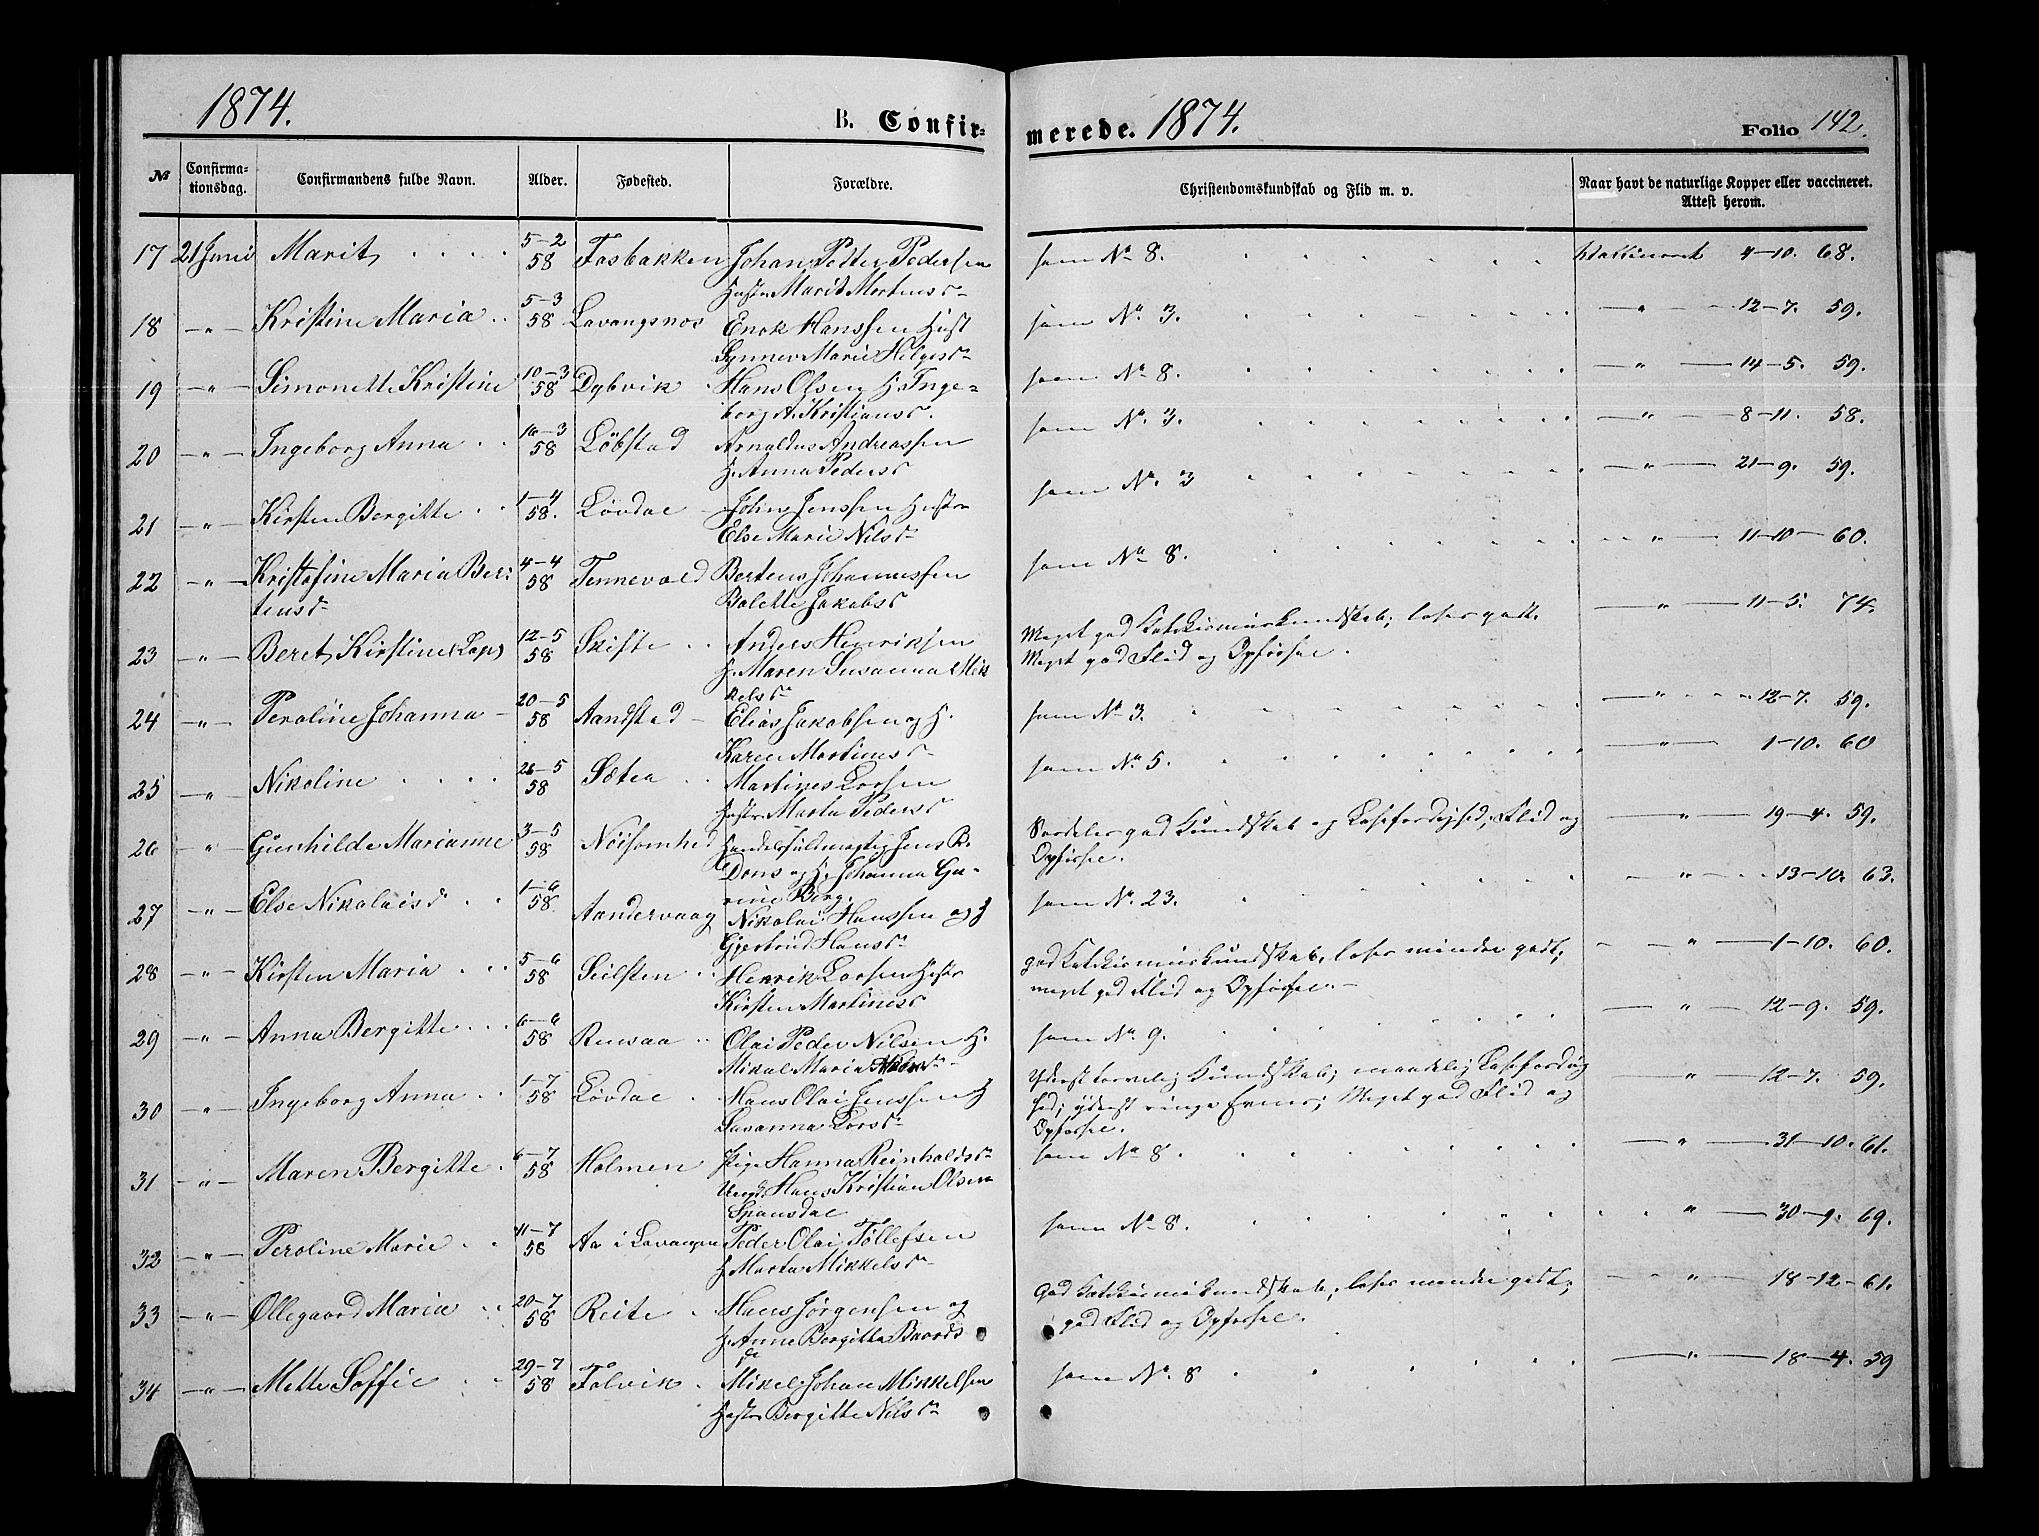 1874.
B. Confir-
merede. 1874.
Folio 142.
No
Confirma-
tionsdag.
Confirmandens fulde Navn.
Alder.
Fødested.
Forældre.
Christendomskundskab og Flid m. v.
Naar havt de naturlige Kopper eller vaccineret.
Attest herom.
17 21 Juni Marit 5-2 58 Fosbakken Johan Petter Pedersen som No 8. 4-10. 68.
Hustr Marit Mortensd
18 -"- Kristine Maria 5-3 58 Lavangsnæs Enok Hanssen Hust som No 3. -"- 12-7. 59.
Synnev Marie Helgesd
19 -"- Simonette Kristine 10-3 58 Dybvik Hans Olsen H. Inge- som No 8. -"- 14-5. 59.
borg A. Kristiansd.
20 -"- Ingeborg Anna 16-3 58 Løbstad Arnoldus Andreassen som No 3. -"- 8-11. 58.
H. Anna Pedersd
21 -"- Kirsten Bergitte 1-4 58. Lövdal John Jenssen Hustr som No. 3 -"- 21-9. 59.
Else Marie Nilsd
22 -"- Kristofine Maria Ber- 4-4 58 Tennevold Bertens Johannessen som No 8. -"- 11-10-60.
tensd Bolette Jakobsd
23 -"- Beret Kirstine (Lap) 12-5 58 Skifte Anders Henriksen Meget god Katekismuskundskab; læser godt. -"- 11-5. 74.
H. Maren Susanna Mik Meget god Flid og Opførsel.
kelsd
24 -"- Peroline Johanna 20-5 58 Aandstad Elias Jakobsen og H. som No 3. -"- 12-7. 59.
Karen Martinusd
25 -"- Nikoline 26-5 58 Sætra Martines Larsen som No 5. -"- 1-10. 60
Hustr Marta Pedersd
26 " Gunhilde Marianne 3-5 58 Nöisomhed Handelsfuldmægtig Jens B. Særdeles god Kundskab og Læsefærdighed, Flid og " 19-4. 59.
Dons og H. Johanna Gu- Opførsel.
rine Berg.
27 -"- Else Nikolaisd 1-6 58. Aandervaag Nikolai Hanssen og H som No. 23. -"- 13-10. 63.
Gjertrud Hansd
28 -"- Kirsten Maria 5-6 58 Seilsten Henrik Larsen Hustr god Katekismuskundskab, læser mindre godt; -"- 1-10. 60.
Kirsten Martinusd meget god Flid og Opførsel.
29 -"- Anna Bergitte 6-6 58 Rensaa Olai Peder Nilsen H. som No 9. " 12-9. 59.
Mikal Maria
30 -"- Ingeborg Anna 1-7 58 Lövdal Hans Olai Jenssen H Yderst tarvelig Kundskab; maadelig Læsefærdig " 12-7. 59.
Susanna Larsd hed; yderst ringe Evner; Meget god Flid og
Opførsel.
31 -"- Maren Bergitte 6-7 58 Holmen Pige Hanna Reinholdsd som No 8. " 31-10-61.
Ungk. Hans Kristian Olsen
Spansdal
32 -"- Peroline Marie 11-7 58 Aa i Lavangen Peder Olai Tollefsen som No 8. " 30-9. 69.
H Marta Mikkelsd
33 -"- Ollegaard Maria 20-7 58 Reite Hans Jørgensen og God Katekismuskundskab, læser mindre godt; " 18-12-61.
H. Anne Bergitte Baards god Flid og Opførsel.
34 -"- Mette Soffie 29-7 58 Folvik Mikel Johan Mikkelsen som No. 8 " 18-4. 59
Hustr Bergitte Nilsd